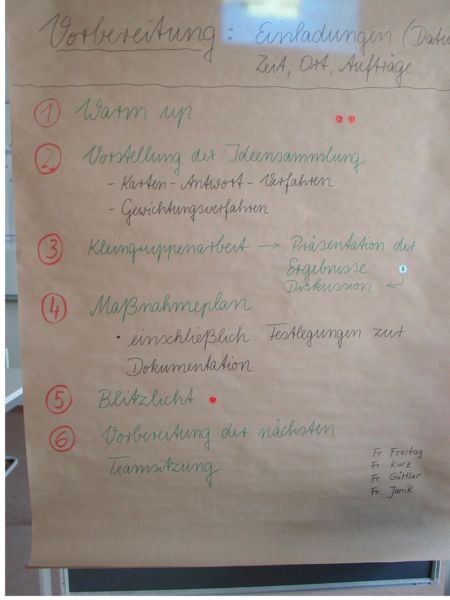 Vorbereitung: Einladungen (Datu
Zeit, Ort, Aufträge
1 Warm up
2 Vorstellung der Ideensammlung
- Karten-Antwort-Verfahren
- Gewichtungsverfahren
3 Kleingruppenarbeit → Präsentation der
Ergebnisse
Diskussion
4 Maßnahmeplan
• einschließlich Festlegungen zur
Dokumentation
5 Blitzlicht
6 Vorbereitung der nächsten
Teamsitzung
Fr. Freitag
Fr. Kurz
Fr. Güttler
Fr. Janik